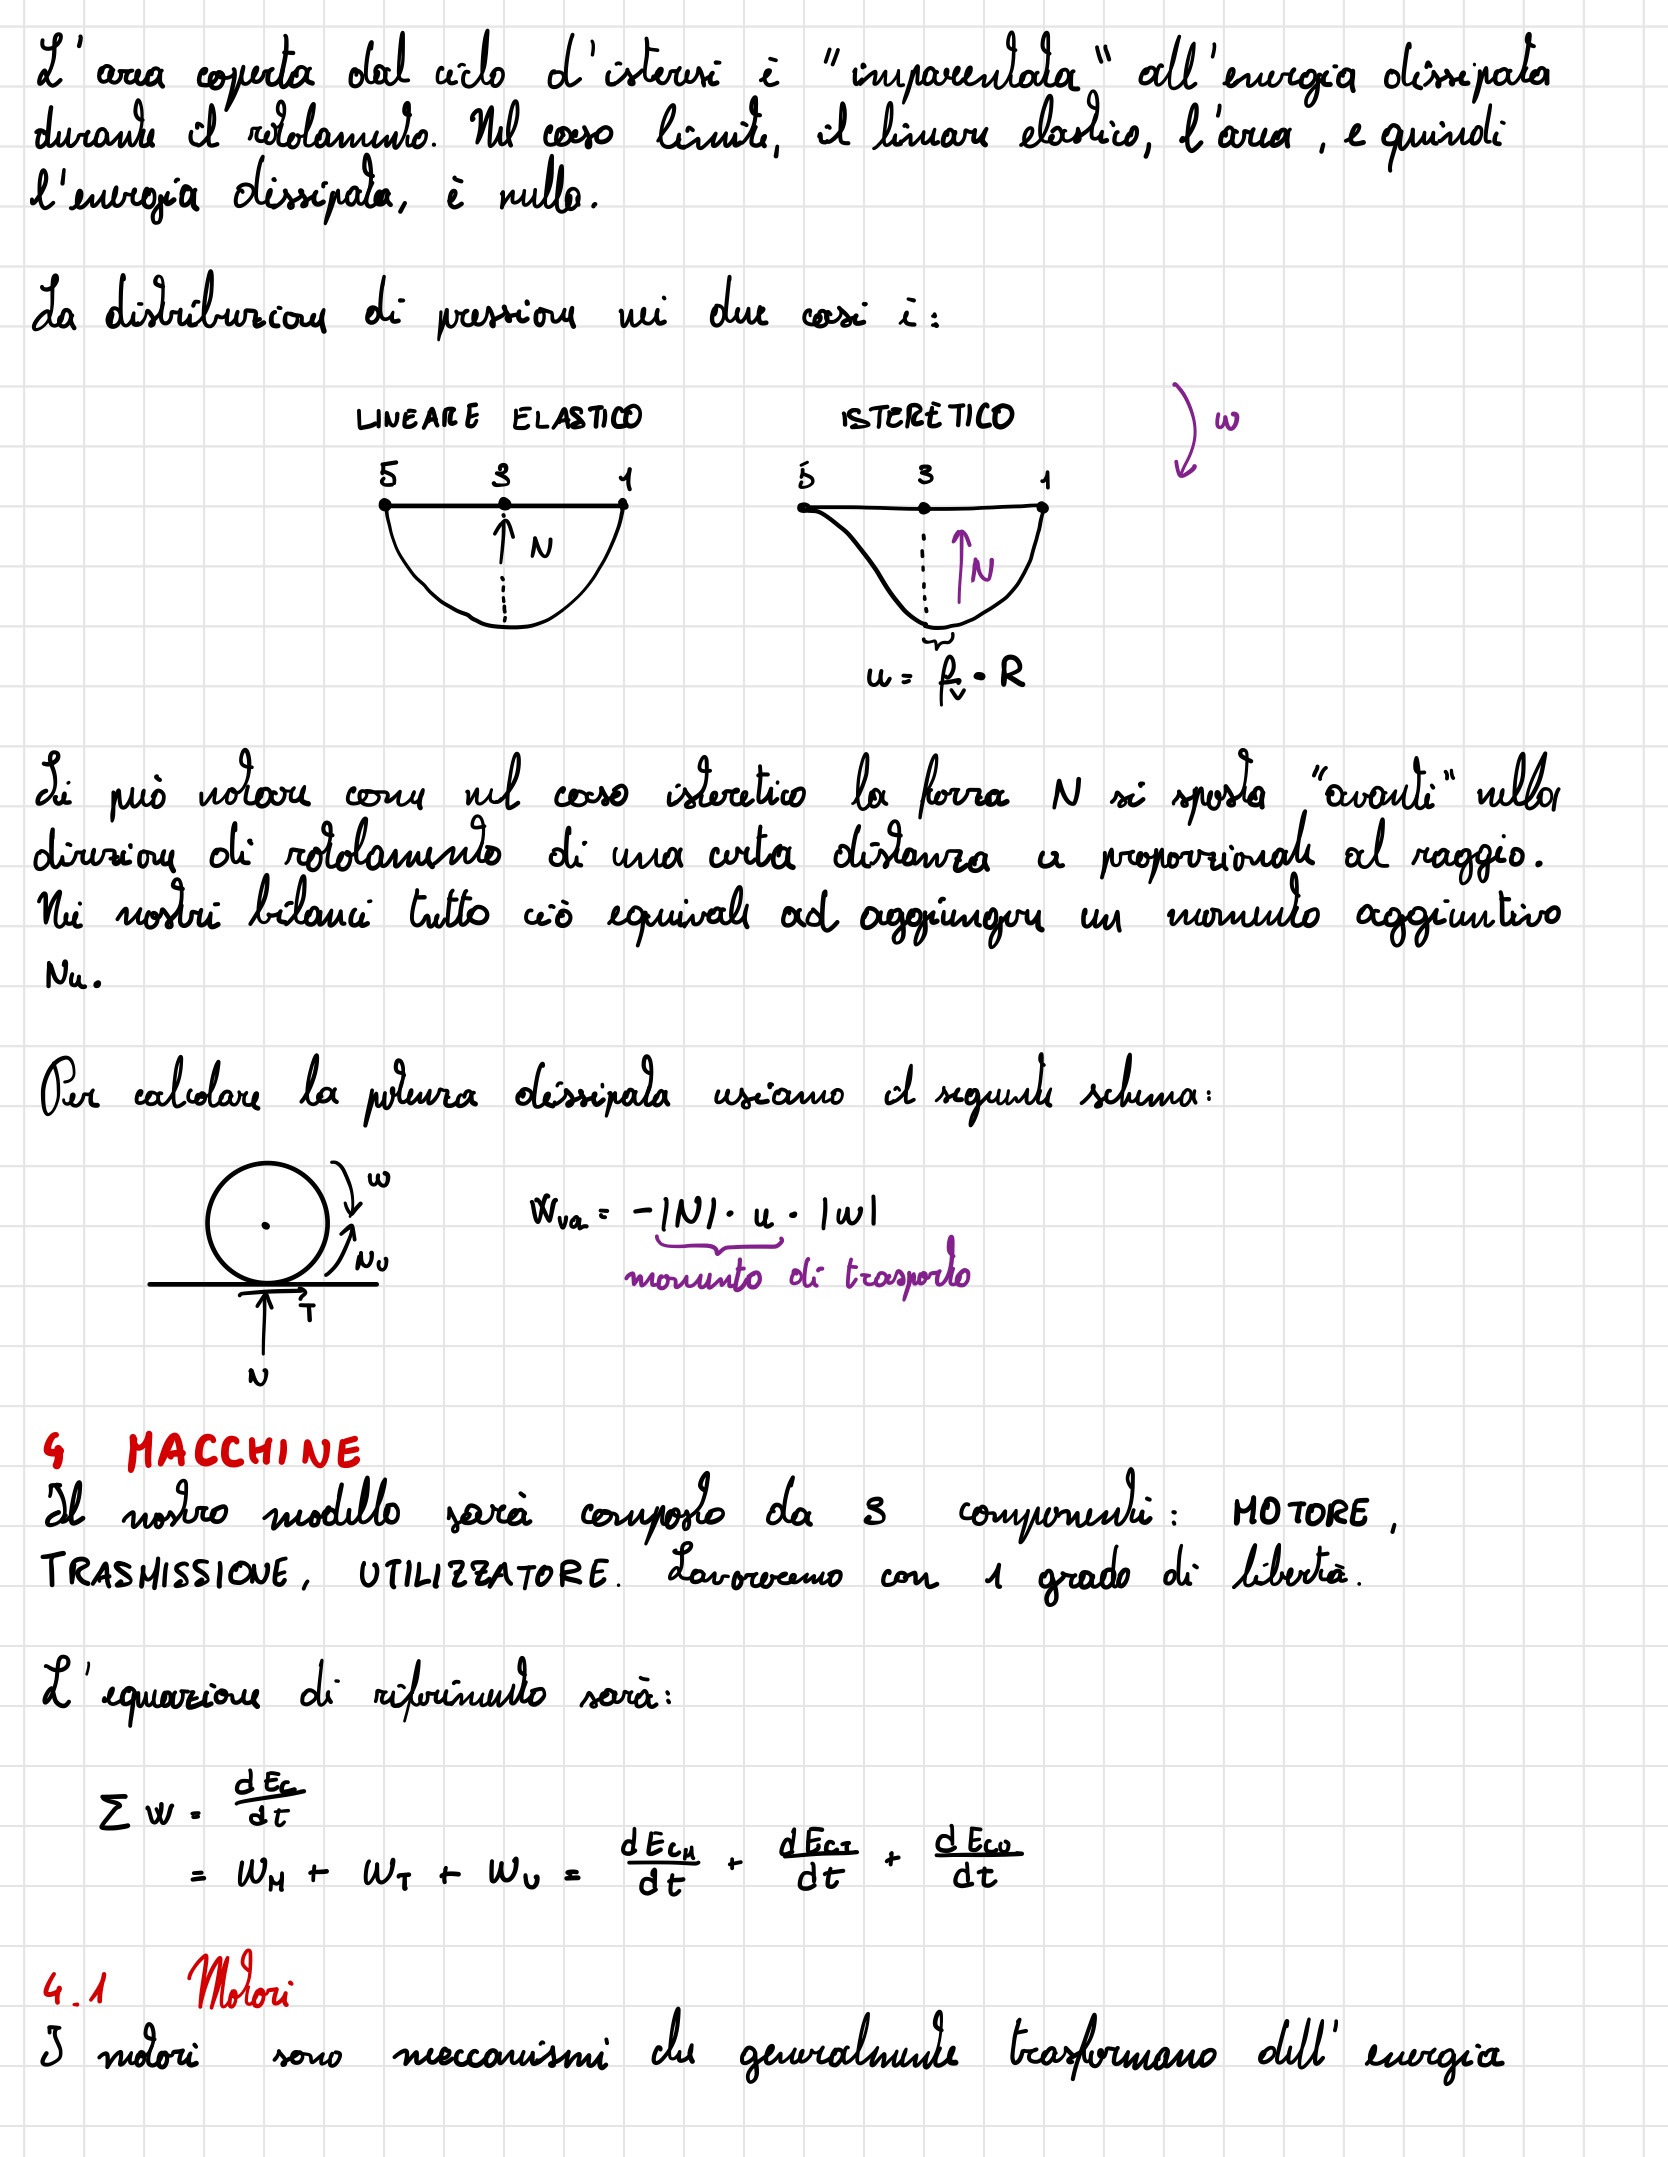 L'area coperta dal ciclo d'isteresi è "imparentata" all'energia dissipata
durante il rotolamento. Nel caso limite, il lineare elastico, l'area, e quindi
l'energia dissipata, è nulla.
La distribuzione di pressione nei due casi è:
LINEARE ELASTICO ISTERETICO ω
5 3 1 5 3 1
N N
u = fv · R
Si può notare come nel caso isteretico la forza N si sposta "avanti" nella
direzione di rotolamento di una certa distanza u proporzionale al raggio.
Nei nostri bilanci tutto ciò equivale ad aggiungere un momento aggiuntivo
Nu.
Per calcolare la potenza dissipata usiamo il seguente schema:
ω
Wva = -|N| · u · |ω|
Nu
momento di trasporto
T
N
4 MACCHINE
Il nostro modello sarà composto da 3 componenti: MOTORE,
TRASMISSIONE, UTILIZZATORE. Lavoreremo con 1 grado di libertà.
L'equazione di riferimento sarà:
Σ W = dEc/dt
= WM + WT + WU = dEcM/dt + dEcT/dt + dEcU/dt
4.1 Motori
I motori sono meccanismi che generalmente trasformano dell'energia